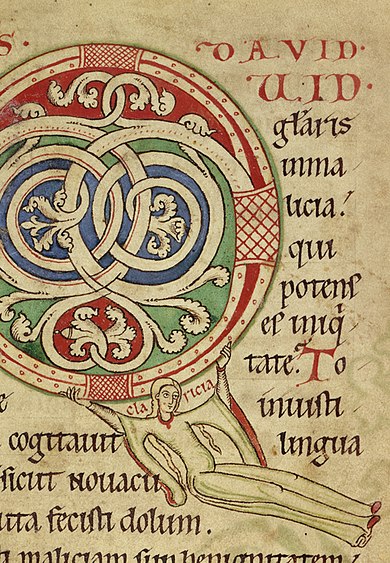 S. DAVID.
UID.
gl̄aris
inma
licia?
qui
potens
es iniq̄
tate? To
e inuisti
cla ricia
cogitauit lingua
sicut nouacu
uta fecisti dolum.
maliciam sup̄ benignitatem